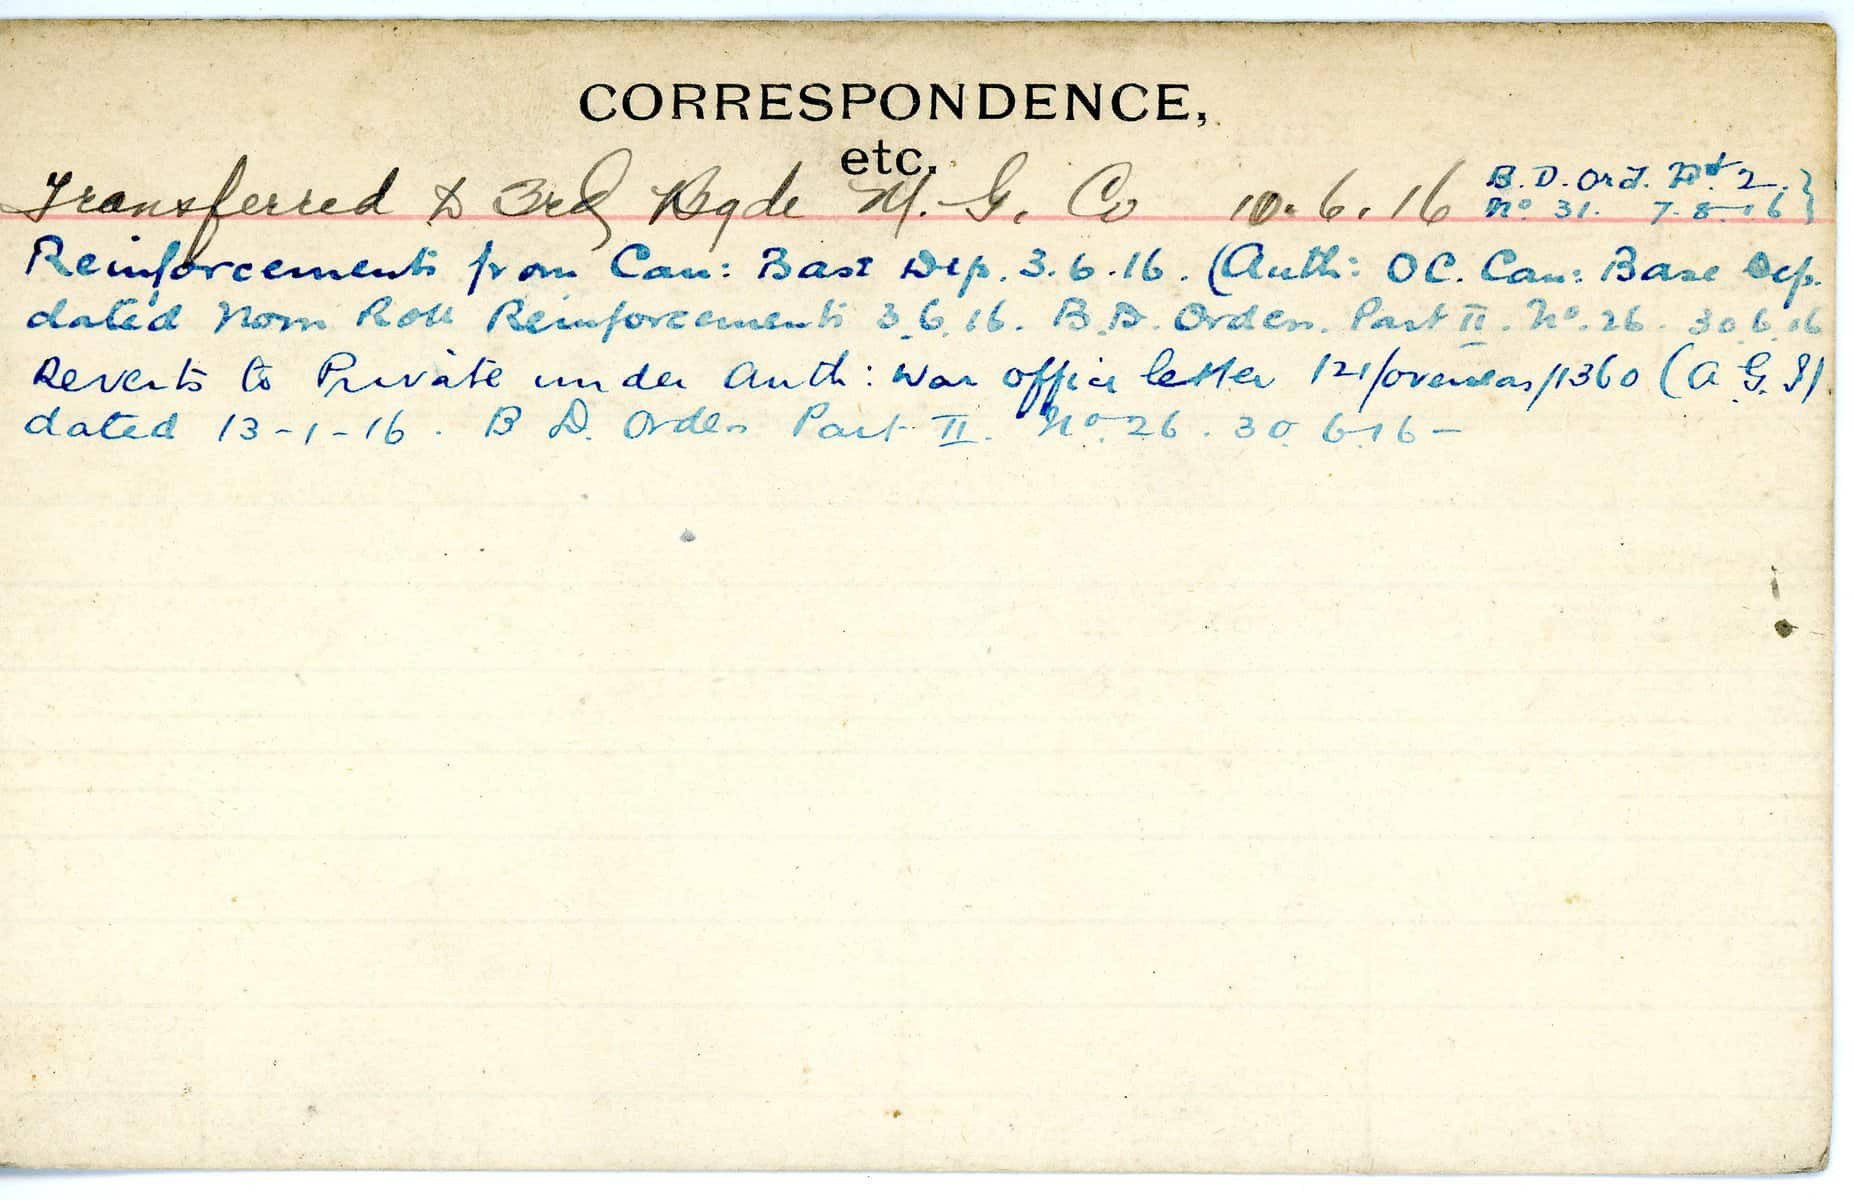 CORRESPONDENCE,
etc.
Transferred to 3rd Bgde M. G. Co 10.6.16 B. D. Ord. Pt 2.
No 31. 7.8.16
Reinforcements from Can: Base Dep. 3.6.16. (Auth: OC. Can: Base Dep.
dated Nom Roll Reinforcements 3.6.16. B.D. Orders. Part II. No. 26. 30.6.16
Reverts to Private under Auth: War Office letter 121/overseas/1360 (A G
dated 13-1-16. B D. Orders Part II. No. 26. 30.6.16-